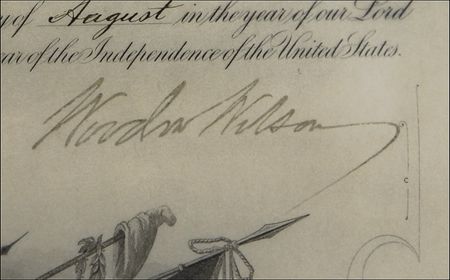 y of August in the year of our Lord
ear of the Independence of the United States.
Woodrow Wilson